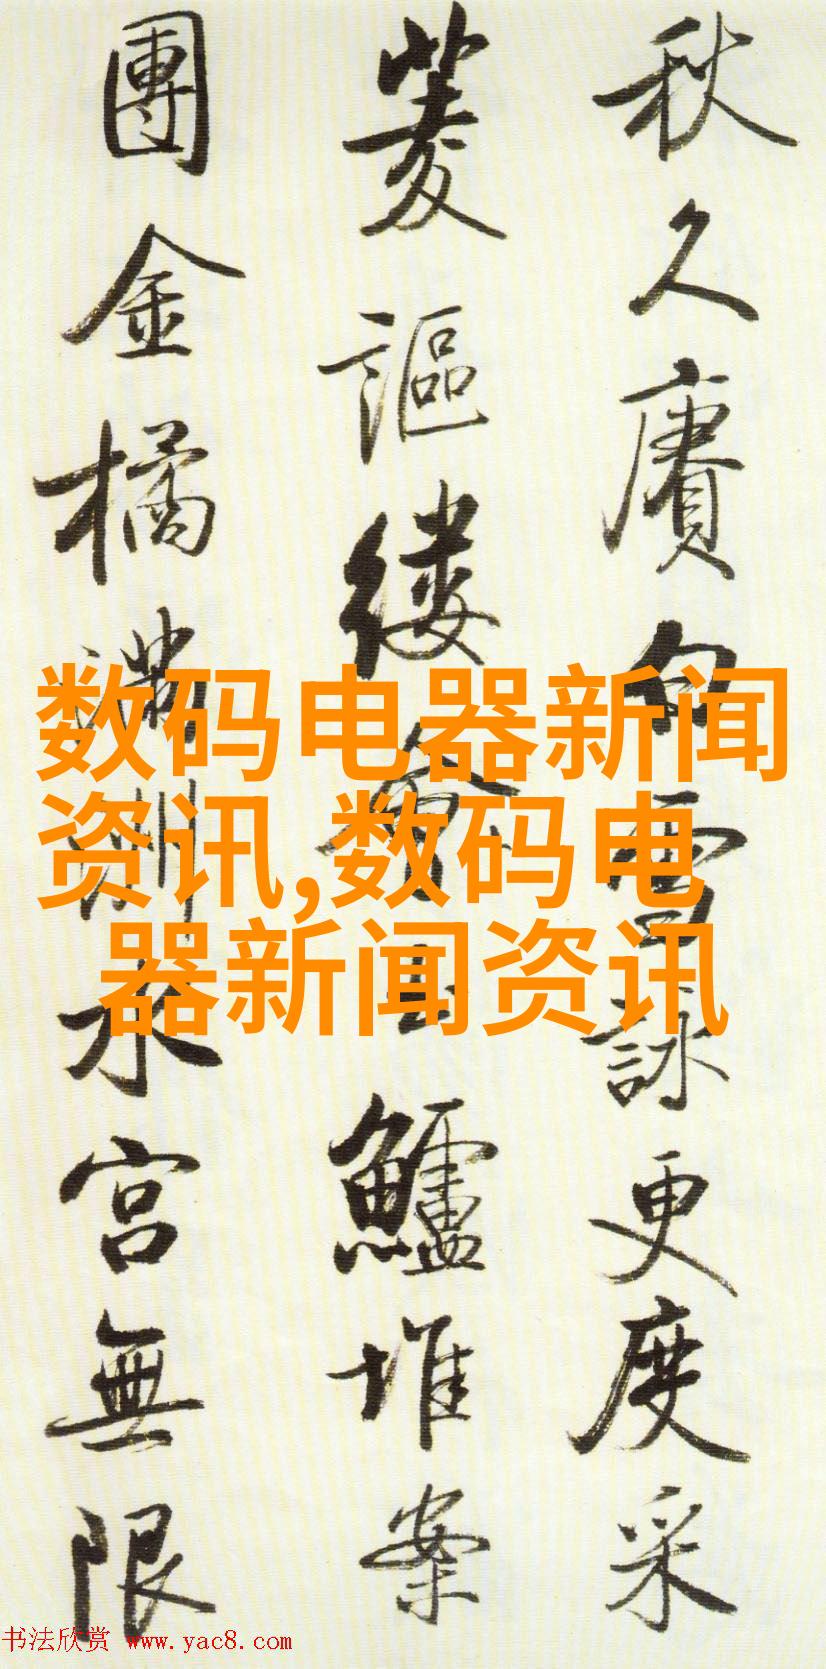 秋久賡白雪詠更度采
菱謳縷會玉鱸堆案
團金橘滿洲水宮無限
数码电器新闻
资讯,数码电
器新闻资讯
书法欣赏 www.yac8.com